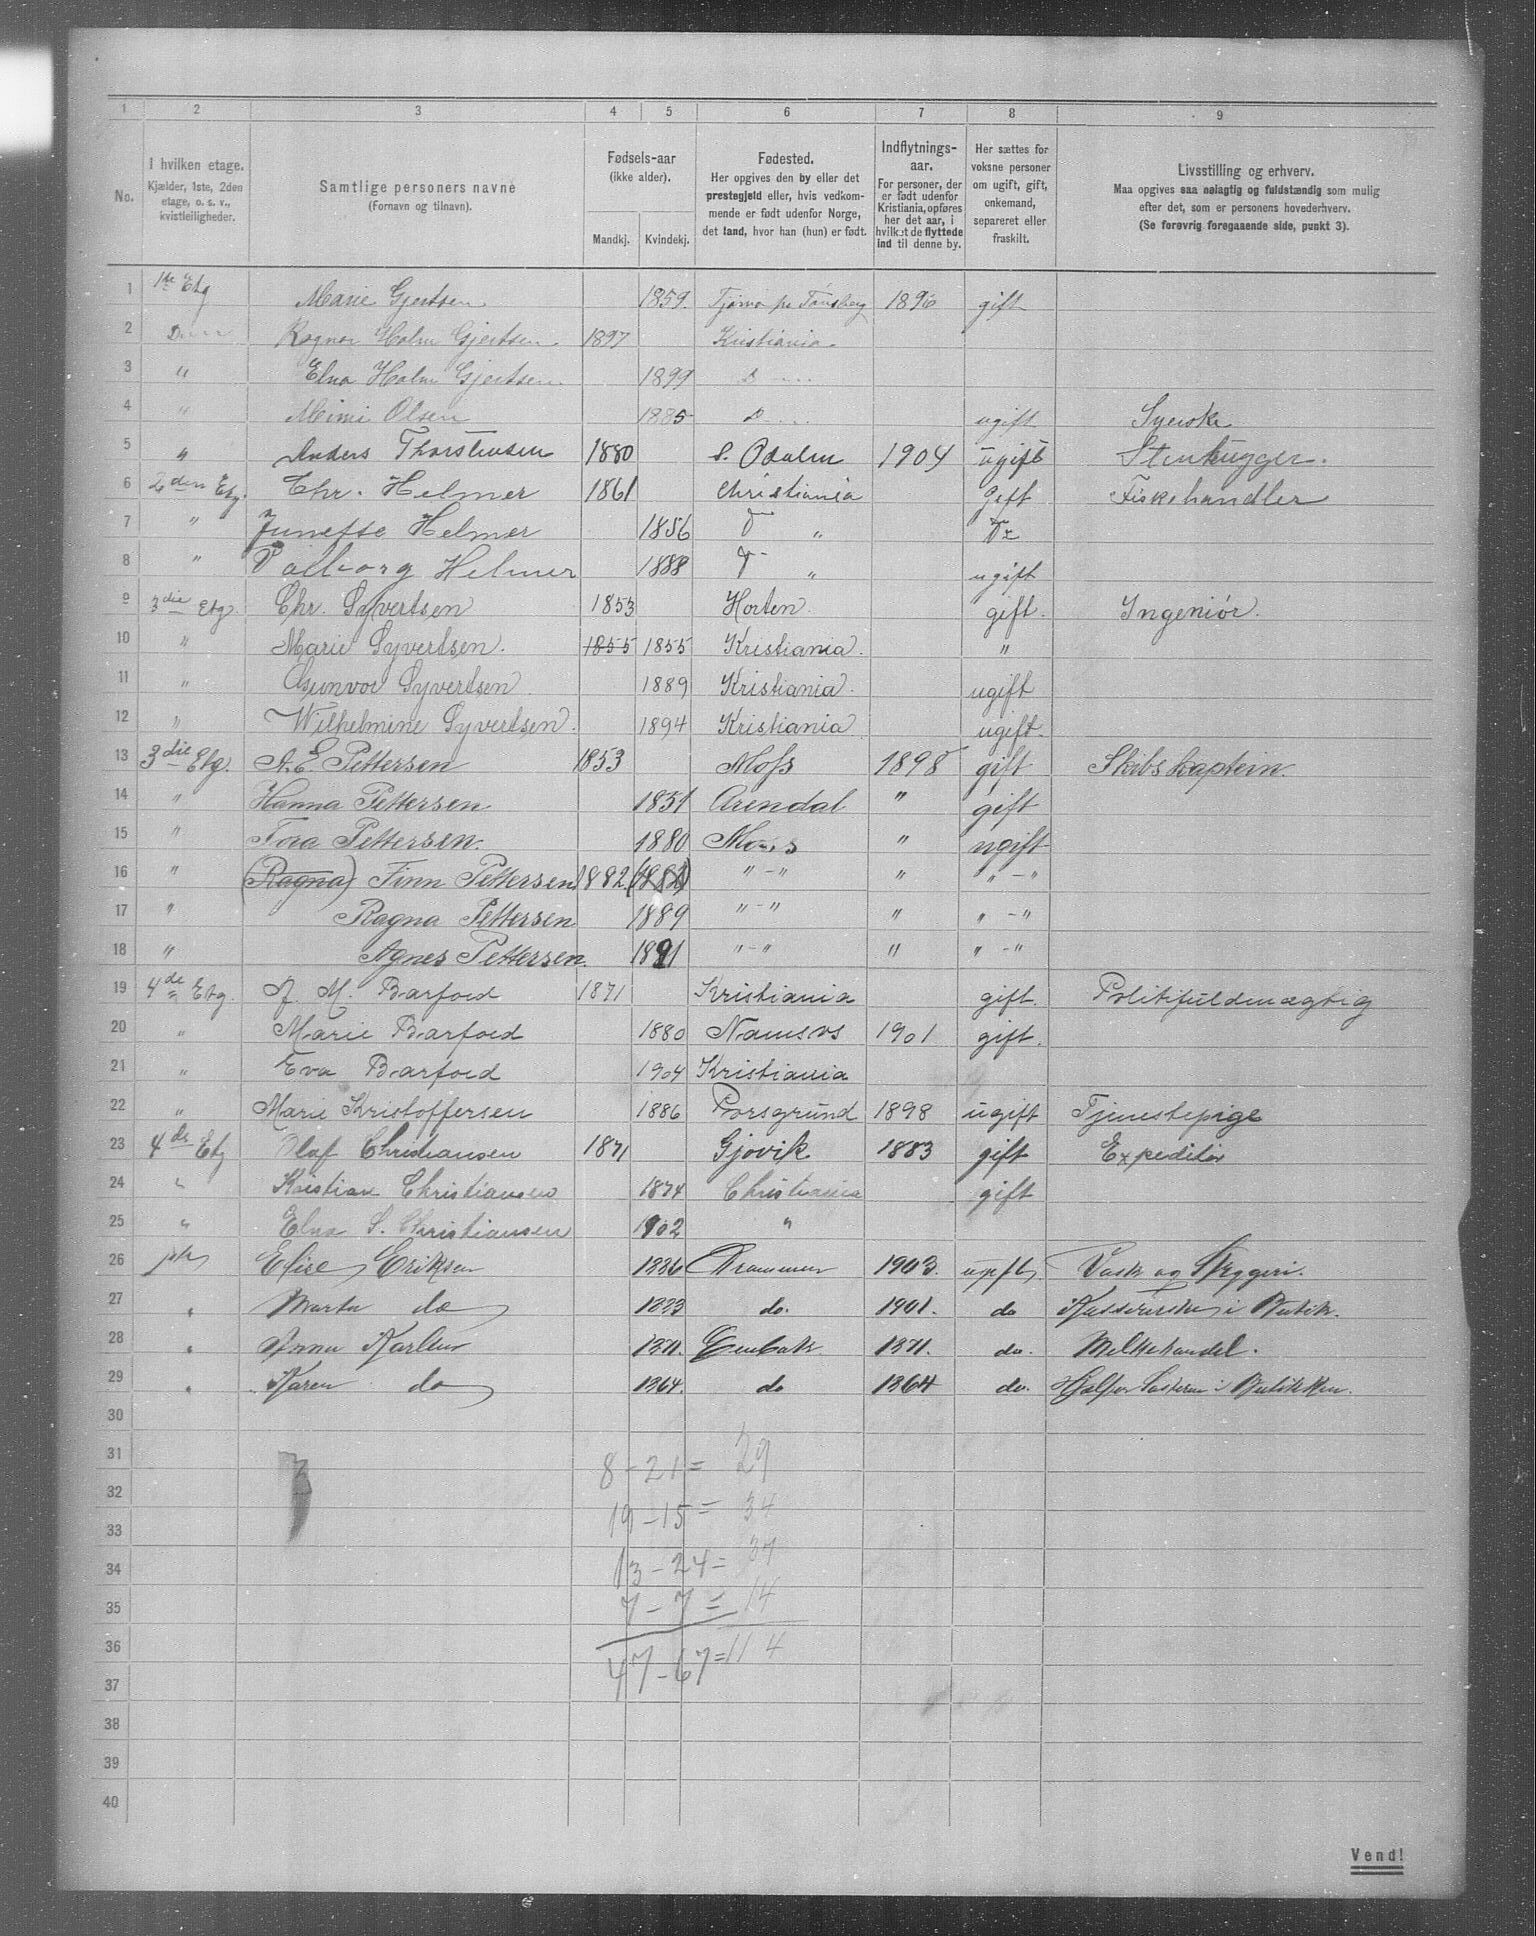 1 2 3 4 5 6 7 8 9
No.
I hvilken etage.
Kjælder, 1ste, 2den
etage, o. s. v.,
kvistleiligheder.
Samtlige personers navne
(Fornavn og tilnavn).
Fødsels-aar
(ikke alder).
Mandkj. Kvindekj.
Fødested.
Her opgives den by eller det
prestegjeld eller, hvis vedkom-
mende er født udenfor Norge,
det land, hvor han (hun) er født.
Indflytnings-
aar.
For personer, der
er født udenfor
Kristiania, opføres
her det aar, i
hvilket de flyttede
ind til denne by.
Her sættes for
voksne personer
om ugift, gift,
enkemand,
separeret eller
fraskilt.
Livsstilling og erhverv.
Maa opgives saa nøiagtig og fuldstændig som mulig
efter det, som er personens hovederhverv.
(Se forøvrig foregaaende side, punkt 3).
1 1ste Etg Marie Gjertsen 1859. Tjømø pr Tønsberg 1896 gift
2 Ragnar Holm Gjertsen 1897 Kristiania
3 " Elna Holm Gjertsen 1899 D
4 " Mimi Olsen 1885 D ugift Syerske
5 " Anders Thorstensen 1880 S. Odalen 1904 ugift Stenhugger.
6 2den Etg. Chr. Helmer 1861 Christiania Gift Fiskehandler
7 " Helmer 1856 "
8 " Valborg Helmer 1888 " ugift
9 3die Etg. Chr. Syvertsen 1853 Horten. gift. Ingeniör.
10 " Marie Syvertsen. 1855 1855 Kristiania. "
11 " Gunvor Syvertsen 1889 Kristiania. ugift
12 " Wilhelmine Syvertsen. 1894 Kristiania ugift.
13 3die Etg. A. E. Pettersen 1853 Moss 1898 gift Skibskaptein.
14 " Hanna Pettersen 1851 Arendal " gift
15 " Tora Pettersen. 1880 Moss " ugift
16 " (Ragna) Finn Pettersen 1882 (1882) " - " " " - "
17 " Ragna Pettersen 1889 " - " " " - "
18 " Agnes Pettersen. 1891 " - " " " - "
19 4de Etg. M. Barfoed 1871 Kristiania gift. Politifuldmægtig
20 " Marie Barfoed 1880 Namsos 1901 gift.
21 " Eva Barfoed 1904 Kristiania
22 " Marie Kristoffersen 1886 Porsgrund 1898 ugift Tjenestepige
23 4de Etg Olaf Christiansen 1871 Gjøvik 1883 gift Expeditør
24 " Kristiane Christiansen 1874 Christiania gift
25 " Elna S. Christiansen 1902 "
26 Elise Eriksen 1886 Drammen 1903. ugift Vask og Strygeri.
27 " Marta do 1883 do. 1901. do i Butik.
28 " Anna Karlsen 1871. Eneb 1871. do. Melkehandel.
29 " Karen do 1864. do 1864 do. Hjælper Søsteren i Butikken.
30
31 8 - 21 = 29
32
33 19 - 15 = 34
34 13 - 24 = 37
35 7 - 7 = 14
36
37 47 - 67 = 114
38
39
40
Vend!